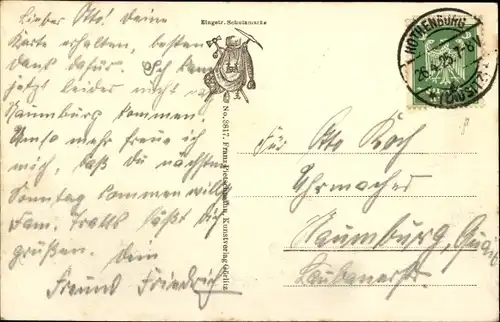 Lieber Otto! Deine
Karte erhalten, besten
Dank dafür. Ich kann
jetzt leider nicht nach
Naumburg kommen.
Umso mehr freue ich
mich, daß Du nächsten
Sonntag kommen willst.
Fam. läßt Dich
grüßen. Dein
Freund Friedrich
Eingetr. Schutzmarke
No. 3817. Franz Pietschmann, Kunstverlag Görlitz
ROTHENBURG
Für Otto Koch
Uhrmacher
Naumburg, Queis
Laubanerstr.